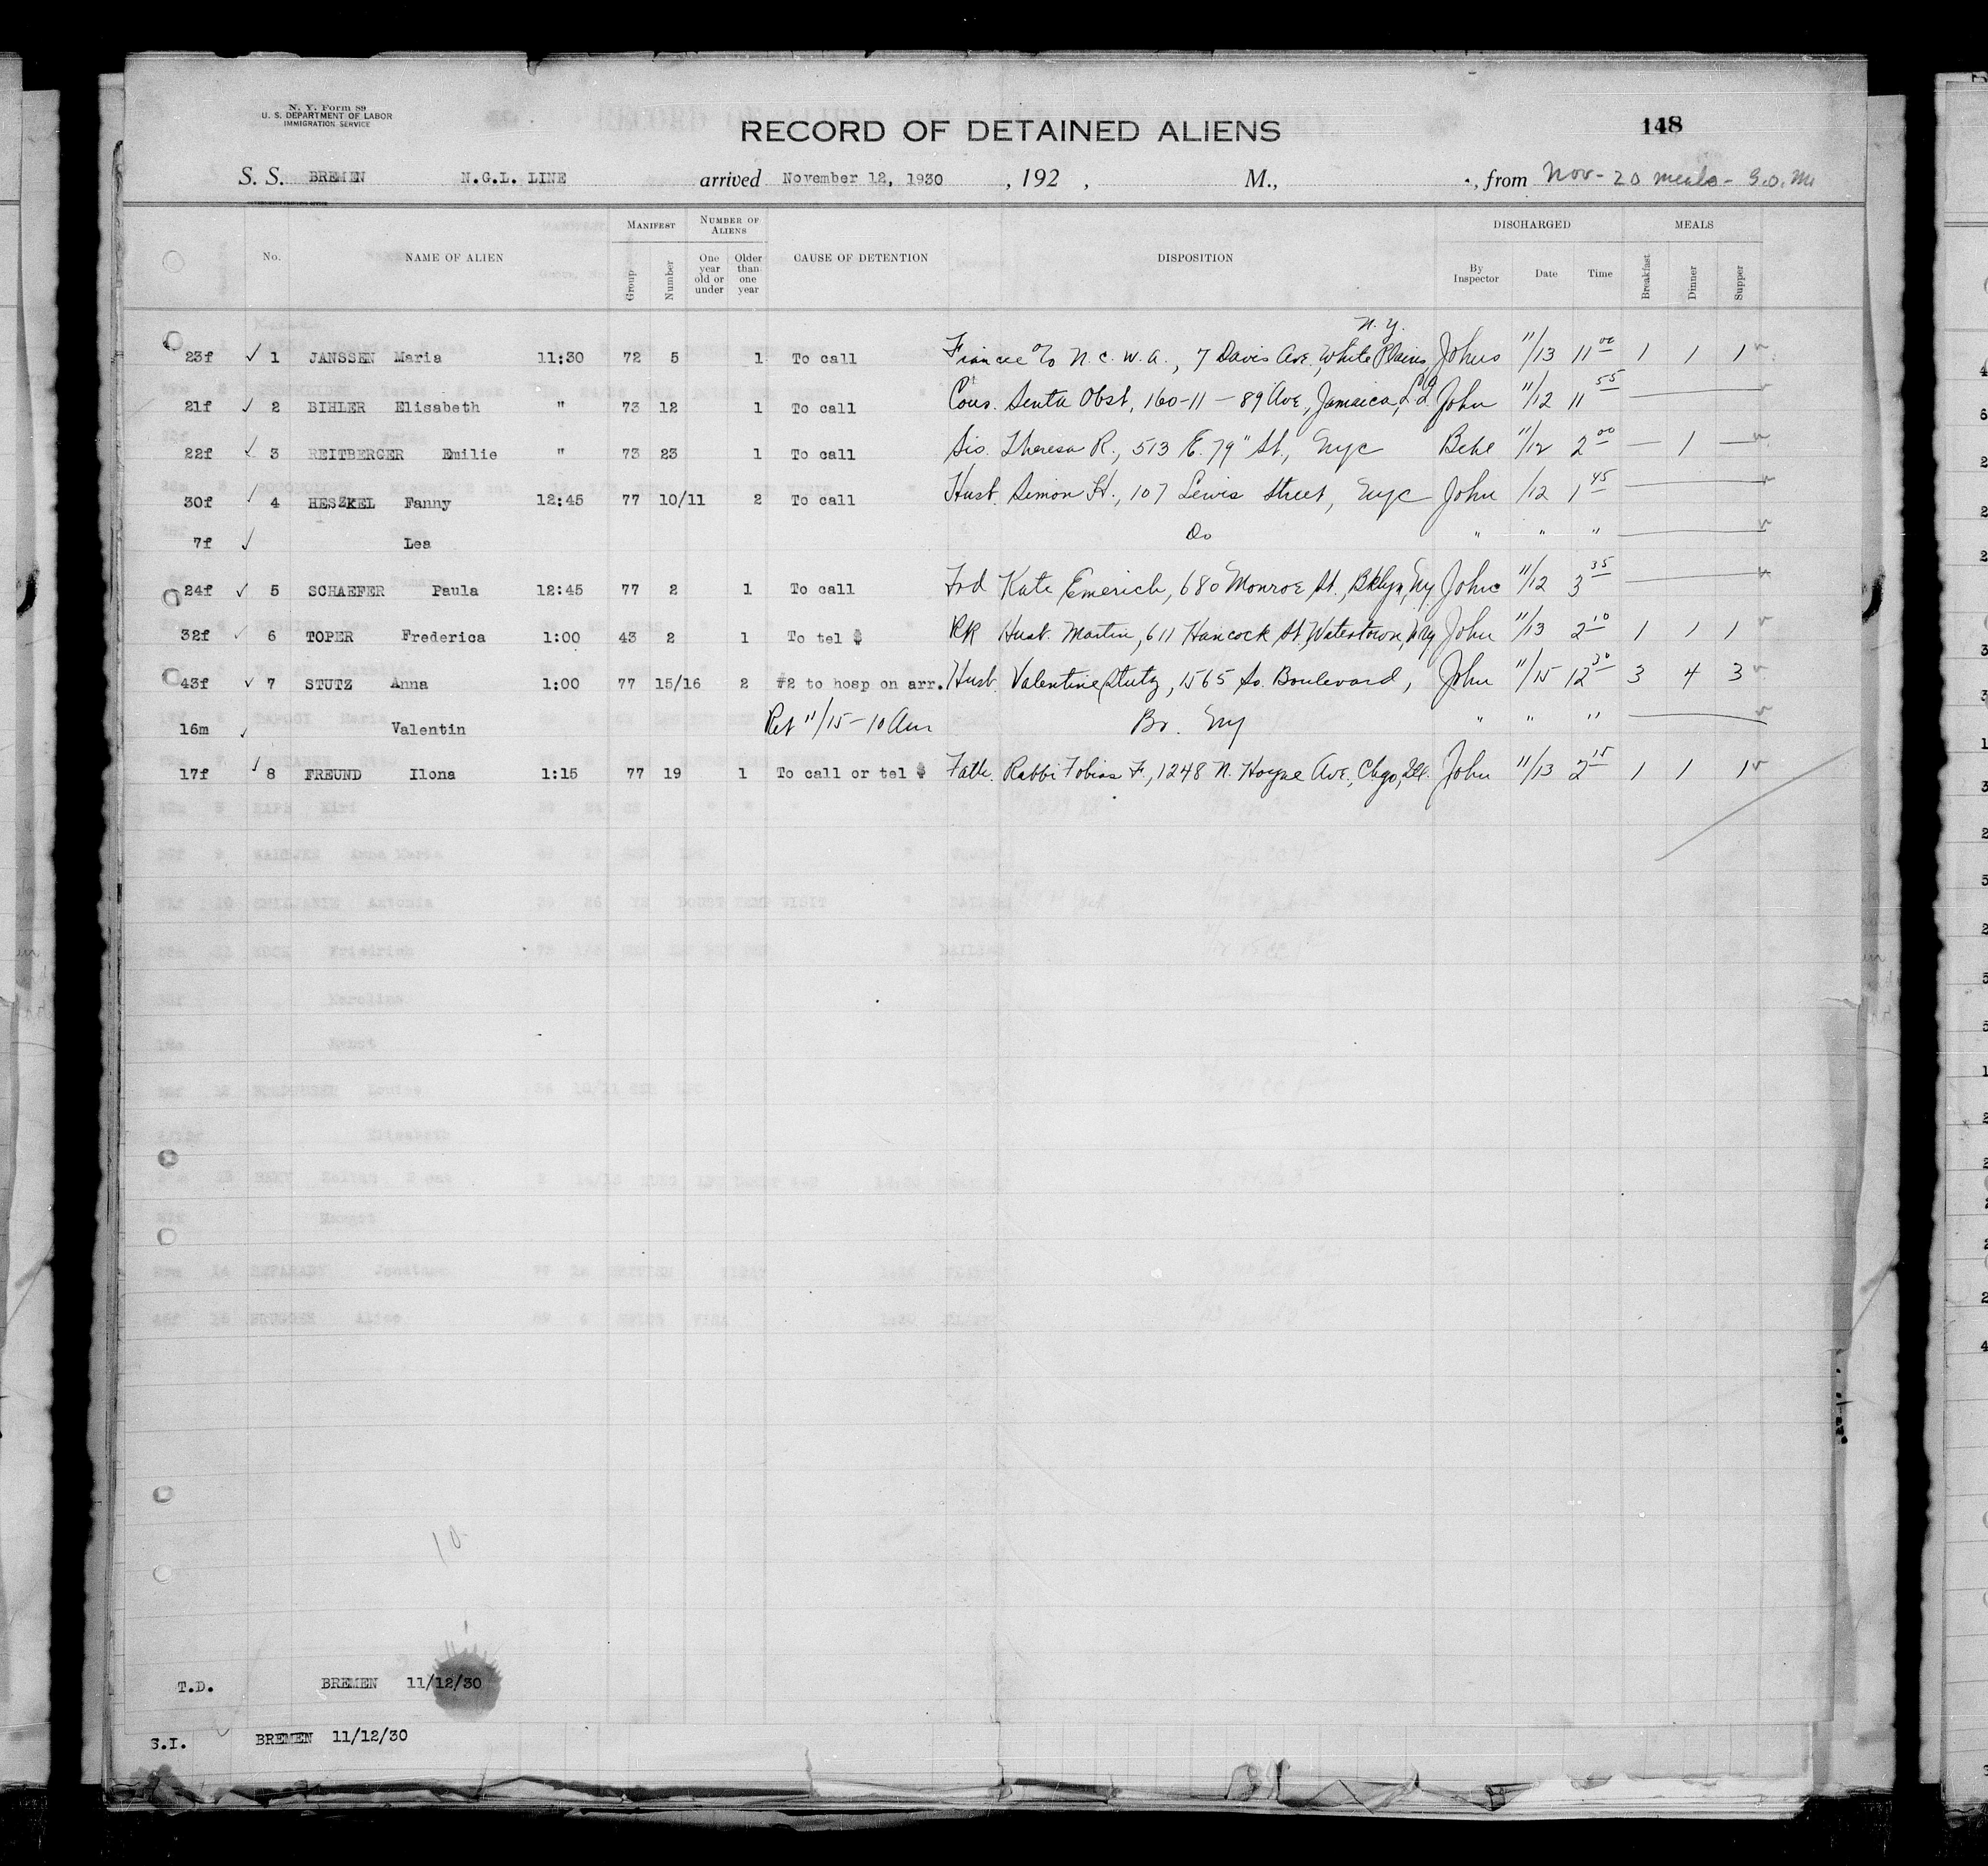 N. Y. Form 89
U. S. DEPARTMENT OF LABOR
IMMIGRATION SERVICE
RECORD OF DETAINED ALIENS
148
S. S. BREMEN N.G.L. LINE arrived November 12, 1930 , 192 , M., , from Nov - 20 meals -
No. NAME OF ALIEN MANIFEST Group Number NUMBER OF ALIENS One year old or under Older than one year CAUSE OF DETENTION DISPOSITION DISCHARGED By Inspector Date Time MEALS Breakfast Dinner Supper
N.Y.
23f ✓ 1 JANSSEN Maria 11:30 72 5 1 To call Fiancee c/o N. C. W. A., 7 Davis Ave., White Plains Johns 11/13 11 00 1 1 1
21f ✓ 2 BIHLER Elisabeth " 73 12 1 To call Cous. Senta Obst, 160-11 - 89 Ave, Jamaica, L.I. John 11/12 11 55
22f ✓ 3 REITBERGER Emilie " 73 23 1 To call Sis. Theresa R., 513 E. 79" St., NYC 11/12 2 00 — 1 —
30f ✓ 4 HESZKEL Fanny 12:45 77 10/11 2 To call Husb. Simon H., 107 Lewis Street, NYC John /12 1 45
7f ✓ Lea Do " " "
24f ✓ 5 SCHAEFER Paula 12:45 77 2 1 To call Frd Kate Emerich, 680 Monroe St., Bklyn, Ny John 11/12 3 35
32f ✓ 6 TOPER Frederica 1:00 43 2 1 To tel $ RR Husb. Martin, 611 Hancock St., Watertown, NY John 11/13 2 10 1 1 1
43f ✓ 7 STUTZ Anna 1:00 77 15/16 2 #2 to hosp on arr. Husb. Valentine Stutz, 1565 So. Boulevard, John 11/15 12 30 3 4 3
16m ✓ Valentin Ret 11/15 - 10 Am Br. Ny " " "
17f ✓ 8 FREUND Ilona 1:15 77 19 1 To call or tel $ Fath. Rabbi Tobias F., 1248 N. Hoyne Ave., Chgo, Ill. John 11/13 2 15 1 1 1
10
T.D. BREMEN 11/12/30
S.I. BREMEN 11/12/30